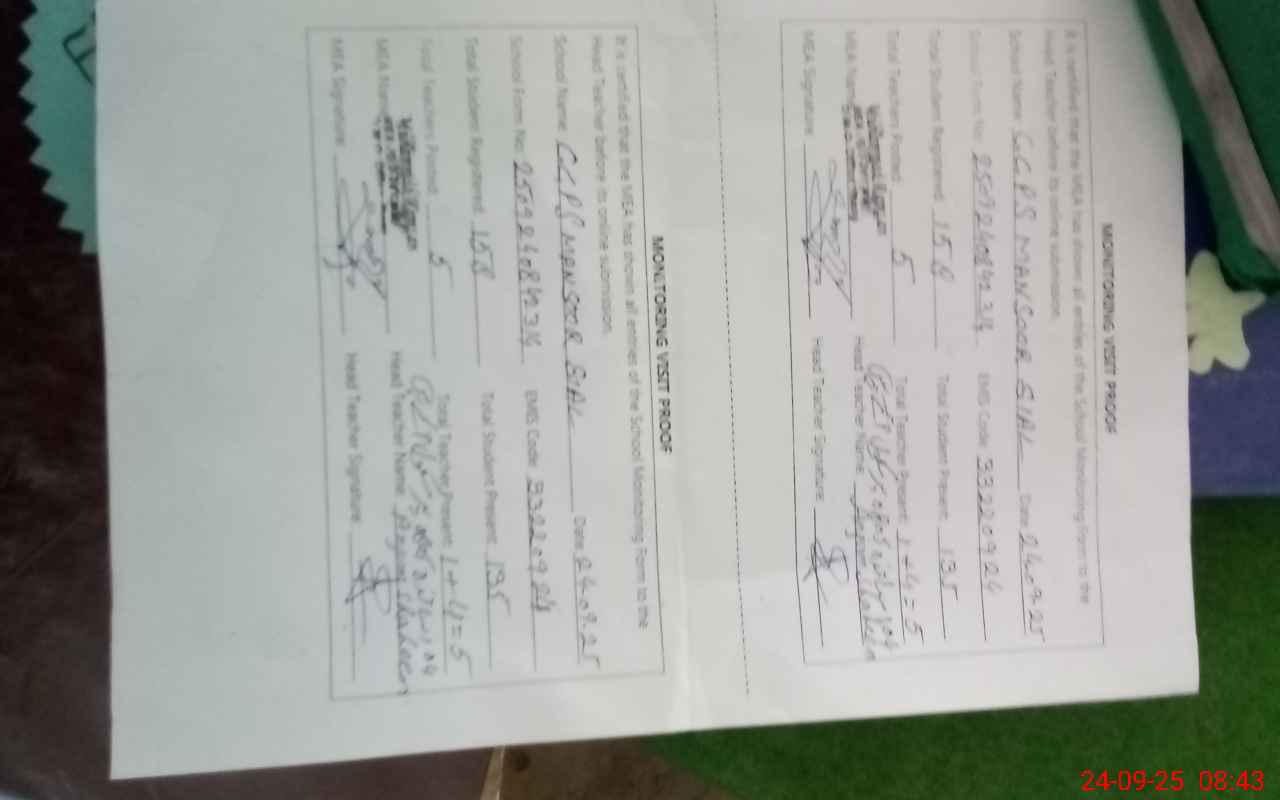 MONITORING VISIT PROOF
It is certified that the MEA has shown all entries of the School Monitoring Form to the
Head Teacher before its online submission.
School Name G.G.P.S MANSOOR SIAL Date 24-09-25
School Form No. EMIS Code 33220924
Total Student Registered 158 Total Student Present 135
Total Teachers Posted 5 Total Teacher Present 1+4=5
MEA Name Head Teacher Name
MEA Signature Head Teacher Signature
MONITORING VISIT PROOF
It is certified that the MEA has shown all entries of the School Monitoring Form to the
Head Teacher before its online submission.
School Name GGPS MANSOOR SIAL Date 24-09-25
School Form No. EMIS Code 33220924
Total Student Registered 158 Total Student Present 135
Total Teachers Posted 5 Total Teacher Present 1+4=5
MEA Name Head Teacher Name
MEA Signature Head Teacher Signature
24-09-25 08:43